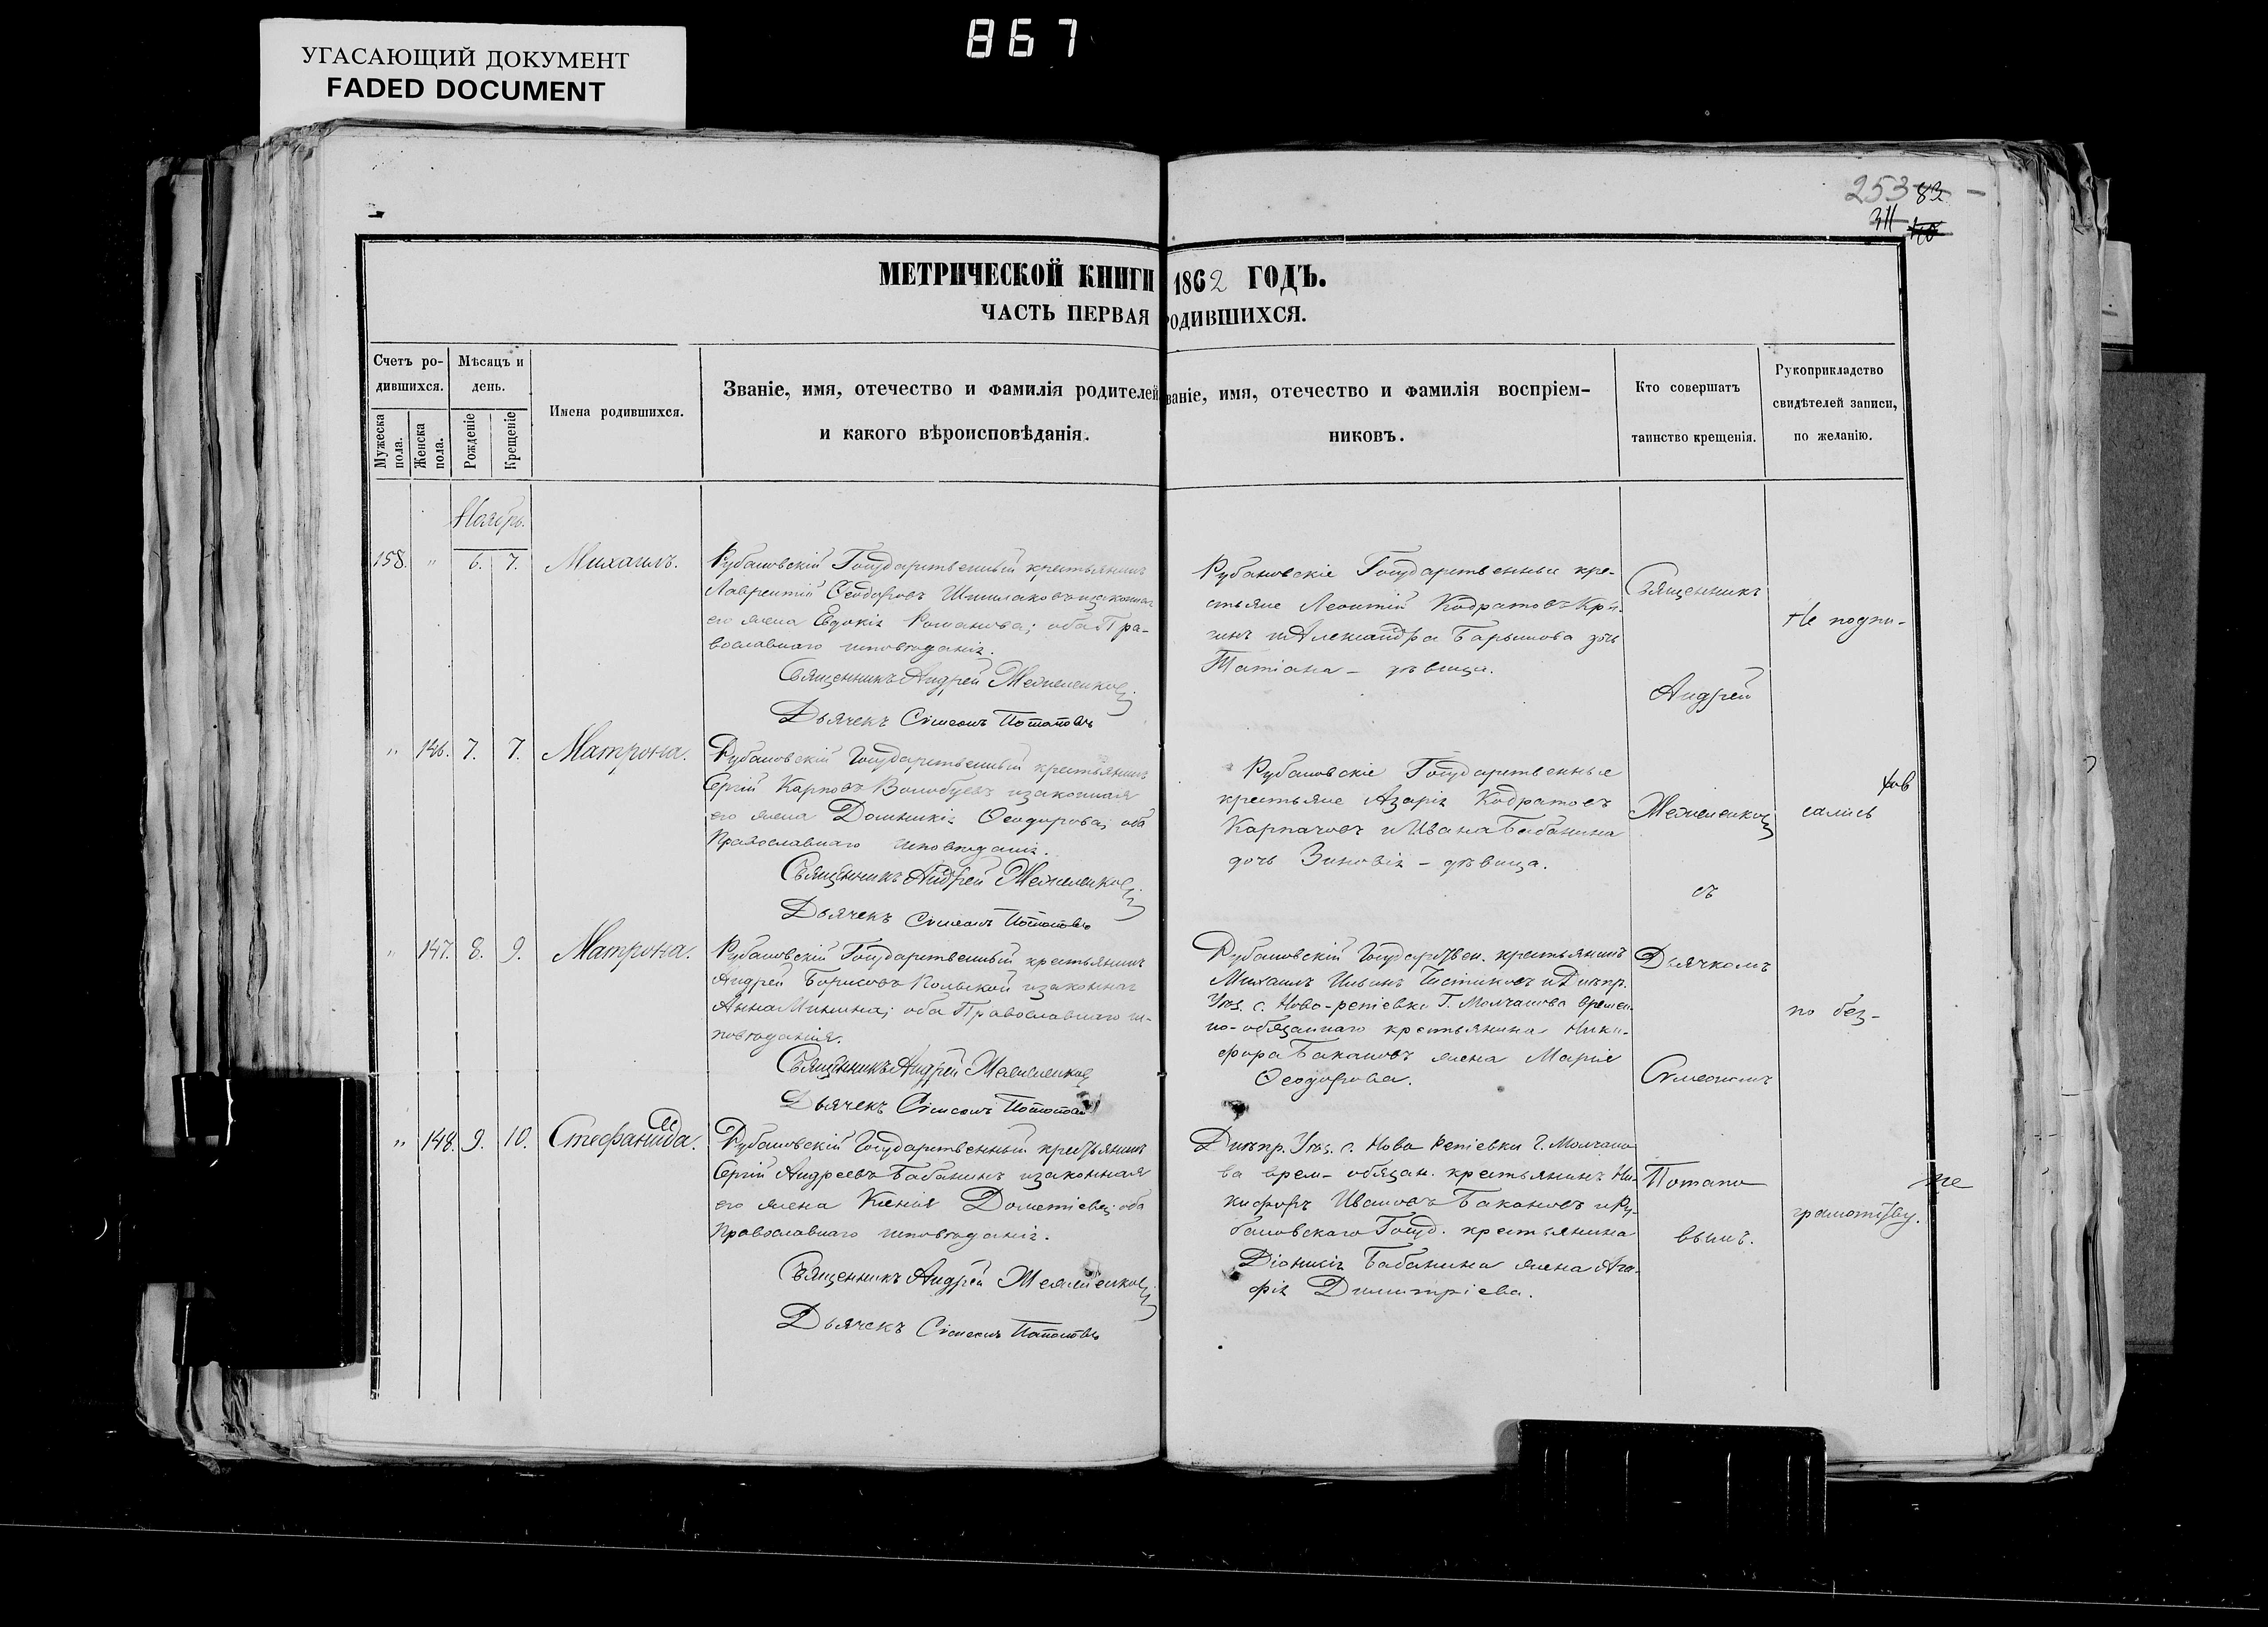 867
УГАСАЮЩИЙ ДОКУМЕНТ
FADED DOCUMENT
253 83
311 140
МЕТРИЧЕСКОЙ КНИГИ 1862 ГОДЪ.
ЧАСТЬ ПЕРВАЯ РОДИВШИХСЯ.
Счетъ ро-
дившихся.
Мужеска
пола.
Женска
пола.
Мѣсяцъ и
день.
Рожденіе
Крещеніе
Имена родившихся.
Званіе, имя, отечество и фамилія родителей
и какого вѣроисповѣданія.
ваніе, имя, отечество и фамилія воспріем-
никовъ.
Кто совершатъ
таинство крещенія.
Рукоприкладство
свидѣтелей записи,
по желанію.
Ноябрь.
158. " 6. 7. Михаилъ.
Рубановскій Государственный крестьянинъ
Лаврентій Ѳеодоровъ изаконная
его жена Евдокія Романова; оба Пра-
вославнаго исповѣданія.
Священникъ Андрей
Дьячекъ Сѵмеонъ Потаповъ
Рубановскіе Государственные кре-
стьяне Леонтій Кодратовъ
и Александра Барышова дочь
Татіана - дѣвица.
" 146. 7. 7. Матрона.
Рубановскій Государственный крестьянинъ
Сергій Карповъ Волобуевъ изаконная
его жена Домникія Ѳеодорова; оба
Православнаго исповѣданія.
Священникъ Андрей
Дьячекъ Сѵмеонъ Потаповъ
Рубановскіе Государственные
крестьяне Азарія Кодратовъ
Карпачовъ и Ивана Бабанина
дочь Зиновія - дѣвица.
" 147. 8. 9. Матрона.
Рубановскій Государственный крестьянинъ
Андрей Борисовъ изаконная
Анна Минина; оба Православнаго ис-
повѣданія.
Священникъ Андрей
Дьячекъ Сѵмеонъ Потаповъ
Рубановскій Государствен. крестьянинъ
Михаилъ Ильинъ и Днѣпр.
Уѣз. с. Ново-репіевки Г. Молчанова времен-
но-обязаннаго крестьянина Ники-
фора Бакановъ жена Марія
Ѳеодорова.
" 148. 9. 10. Стефанида.
Рубановскій Государственный крестьянинъ
Сергій Андреевъ Бабанинъ изаконная
его жена Ксенія Дометіева; оба
Православнаго исповѣданія.
Священникъ Андрей
Дьячекъ Сѵмеонъ Потаповъ
Днѣпр. Уѣз. с. Ново Репіевки Г. Молчано-
ва врем- обязан. крестьянинъ Ни-
кифоръ Ивановъ Бакановъ и Ру-
бановскаго Госуд. крестьянина
Діонисія Бабанина жена Ага-
фія Димитріева.
Священникъ
Андрей
съ
Дьячкомъ
Сѵмеономъ
Потапо
вымъ.
Не подпи-
сались
по без-
грамотству.